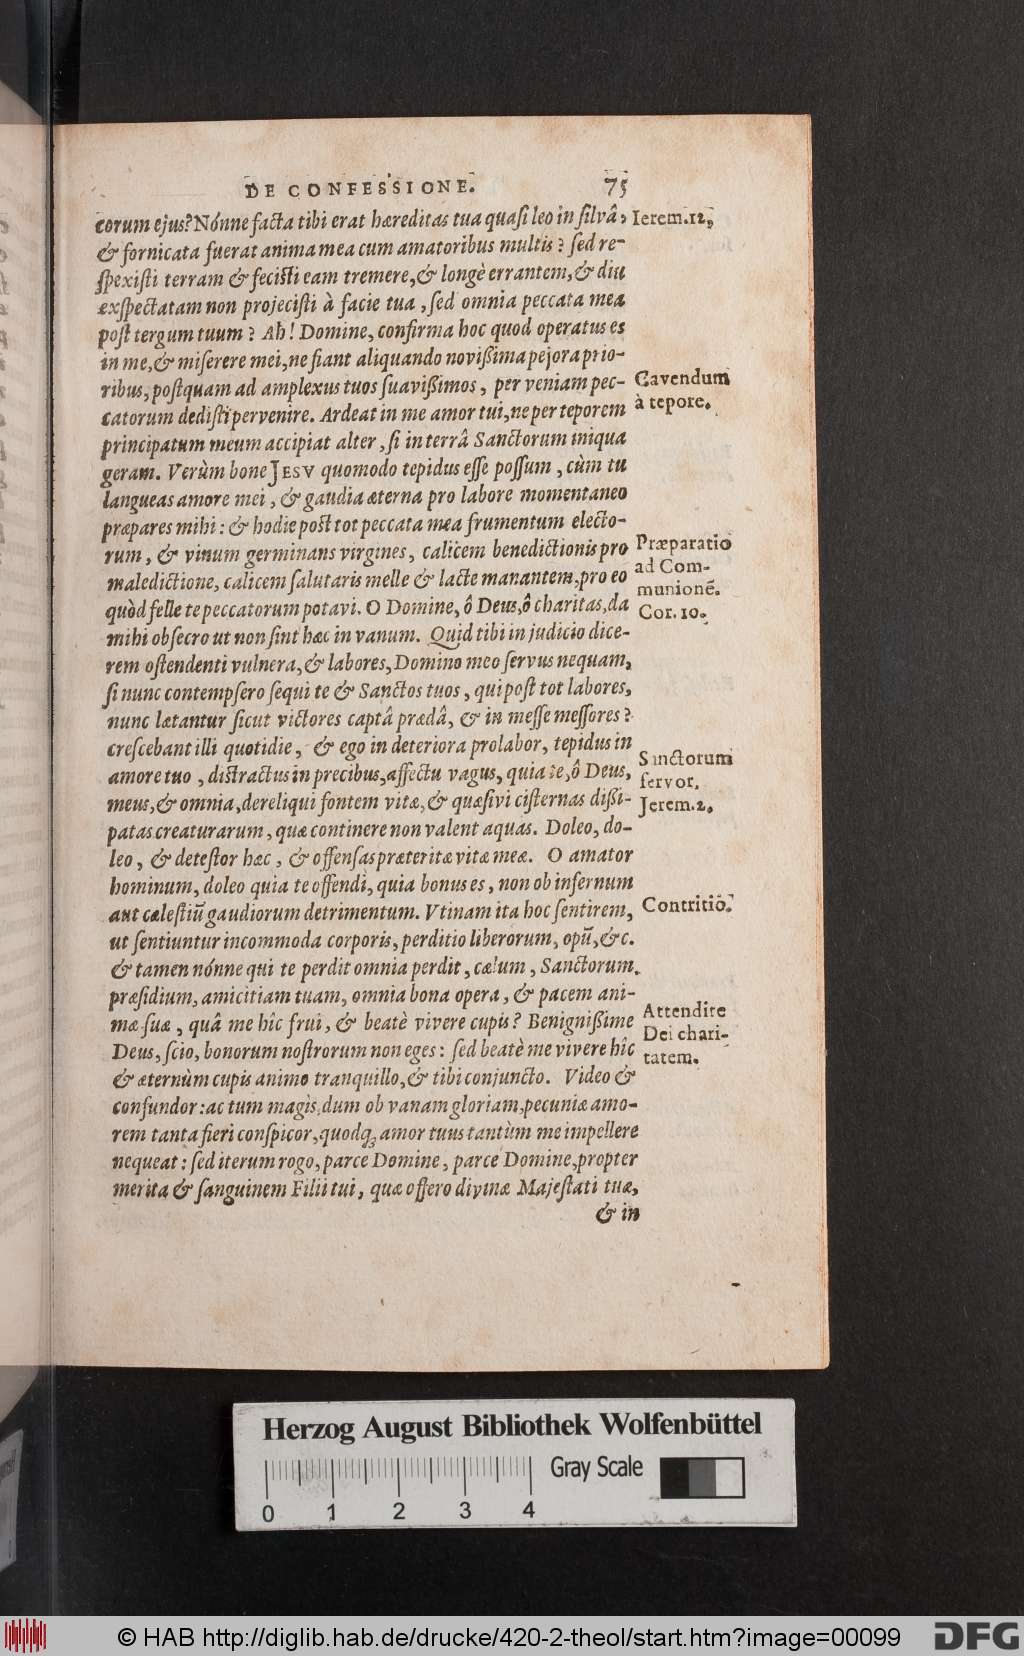 DE CONFESSIONE. 75
corum ejus? Nónne facta tibi erat hæreditas tua quasi leo in silvâ, Ierem.12,
& fornicata fuerat anima mea cum amatoribus multis? sed re-
spexisti terram & fecisti eam tremere, & longè errantem, & diu
exspectatam non projecisti à facie tua, sed omnia peccata mea
post tergum tuum? Ah! Domine, confirma hoc quod operatus es
in me, & miserere mei, ne fiant aliquando novißima pejora prio-
ribus, postquam ad amplexus tuos suavißimos, per veniam pec- Cavendum
catorum dedisti pervenire. Ardeat in me amor tui, ne per teporem à tepore.
principatum meum accipiat alter, si in terrâ Sanctorum iniqua
geram. Verùm bone JESV quomodo tepidus esse possum, cùm tu
langueas amore mei, & gaudia æterna pro labore momentaneo
præpares mihi: & hodie post tot peccata mea frumentum electo-
rum, & vinum germinans virgines, calicem benedictionis pro Præparatio
maledictione, calicem salutaris melle & lacte manantem, pro eo ad Com-
munionẽ.
quòd felle te peccatorum potavi. O Domine, ô Deus, ô charitas, da Cor. 10.
mihi obsecro ut non sint hæc in vanum. Quid tibi in judicio dice-
rem ostendenti vulnera, & labores, Domino meo servus nequam,
si nunc contempsero sequi te & Sanctos tuos, qui post tot labores,
nunc lætantur sicut victores captâ prædâ, & in messe messores?
crescebant illi quotidie, & ego in deteriora prolabor, tepidus in Sanctorum
amore tuo, distractus in precibus, affectu vagus, quia te, ô Deus, fervor.
meus, & omnia, dereliqui fontem vitæ, & quæsivi cisternas dißi- Jerem.2.
patas creaturarum, quæ continere non valent aquas. Doleo, do-
leo, & detestor hæc, & offensas præteritæ vitæ meæ. O amator
hominum, doleo quia te offendi, quia bonus es, non ob infernum
aut cælestiũ gaudiorum detrimentum. Vtinam ita hoc sentirem, Contritio.
ut sentiuntur incommoda corporis, perditio liberorum, opũ, &c.
& tamen nónne qui te perdit omnia perdit, cælum, Sanctorum
præsidium, amicitiam tuam, omnia bona opera, & pacem ani-
mæ suæ, quâ me hîc frui, & beatè vivere cupis? Benignißime Attendite
Deus, scio, bonorum nostrorum non eges: sed beatè me vivere hîc Dei chari-
tatem.
& æternùm cupis animo tranquillo, & tibi conjuncto. Video &
confundor: ac tum magis, dum ob vanam gloriam, pecuniæ amo-
rem tanta fieri conspicor, quodq; amor tuus tantùm me impellere
nequeat: sed iterum rogo, parce Domine, parce Domine, propter
merita & sanguinem Filii tui, quæ offero divinæ Majestati tuæ,
& in
Herzog August Bibliothek Wolfenbüttel
Gray Scale
0 1 2 3 4
© HAB http://diglib.hab.de/drucke/420-2-theol/start.htm?image=00099 DFG